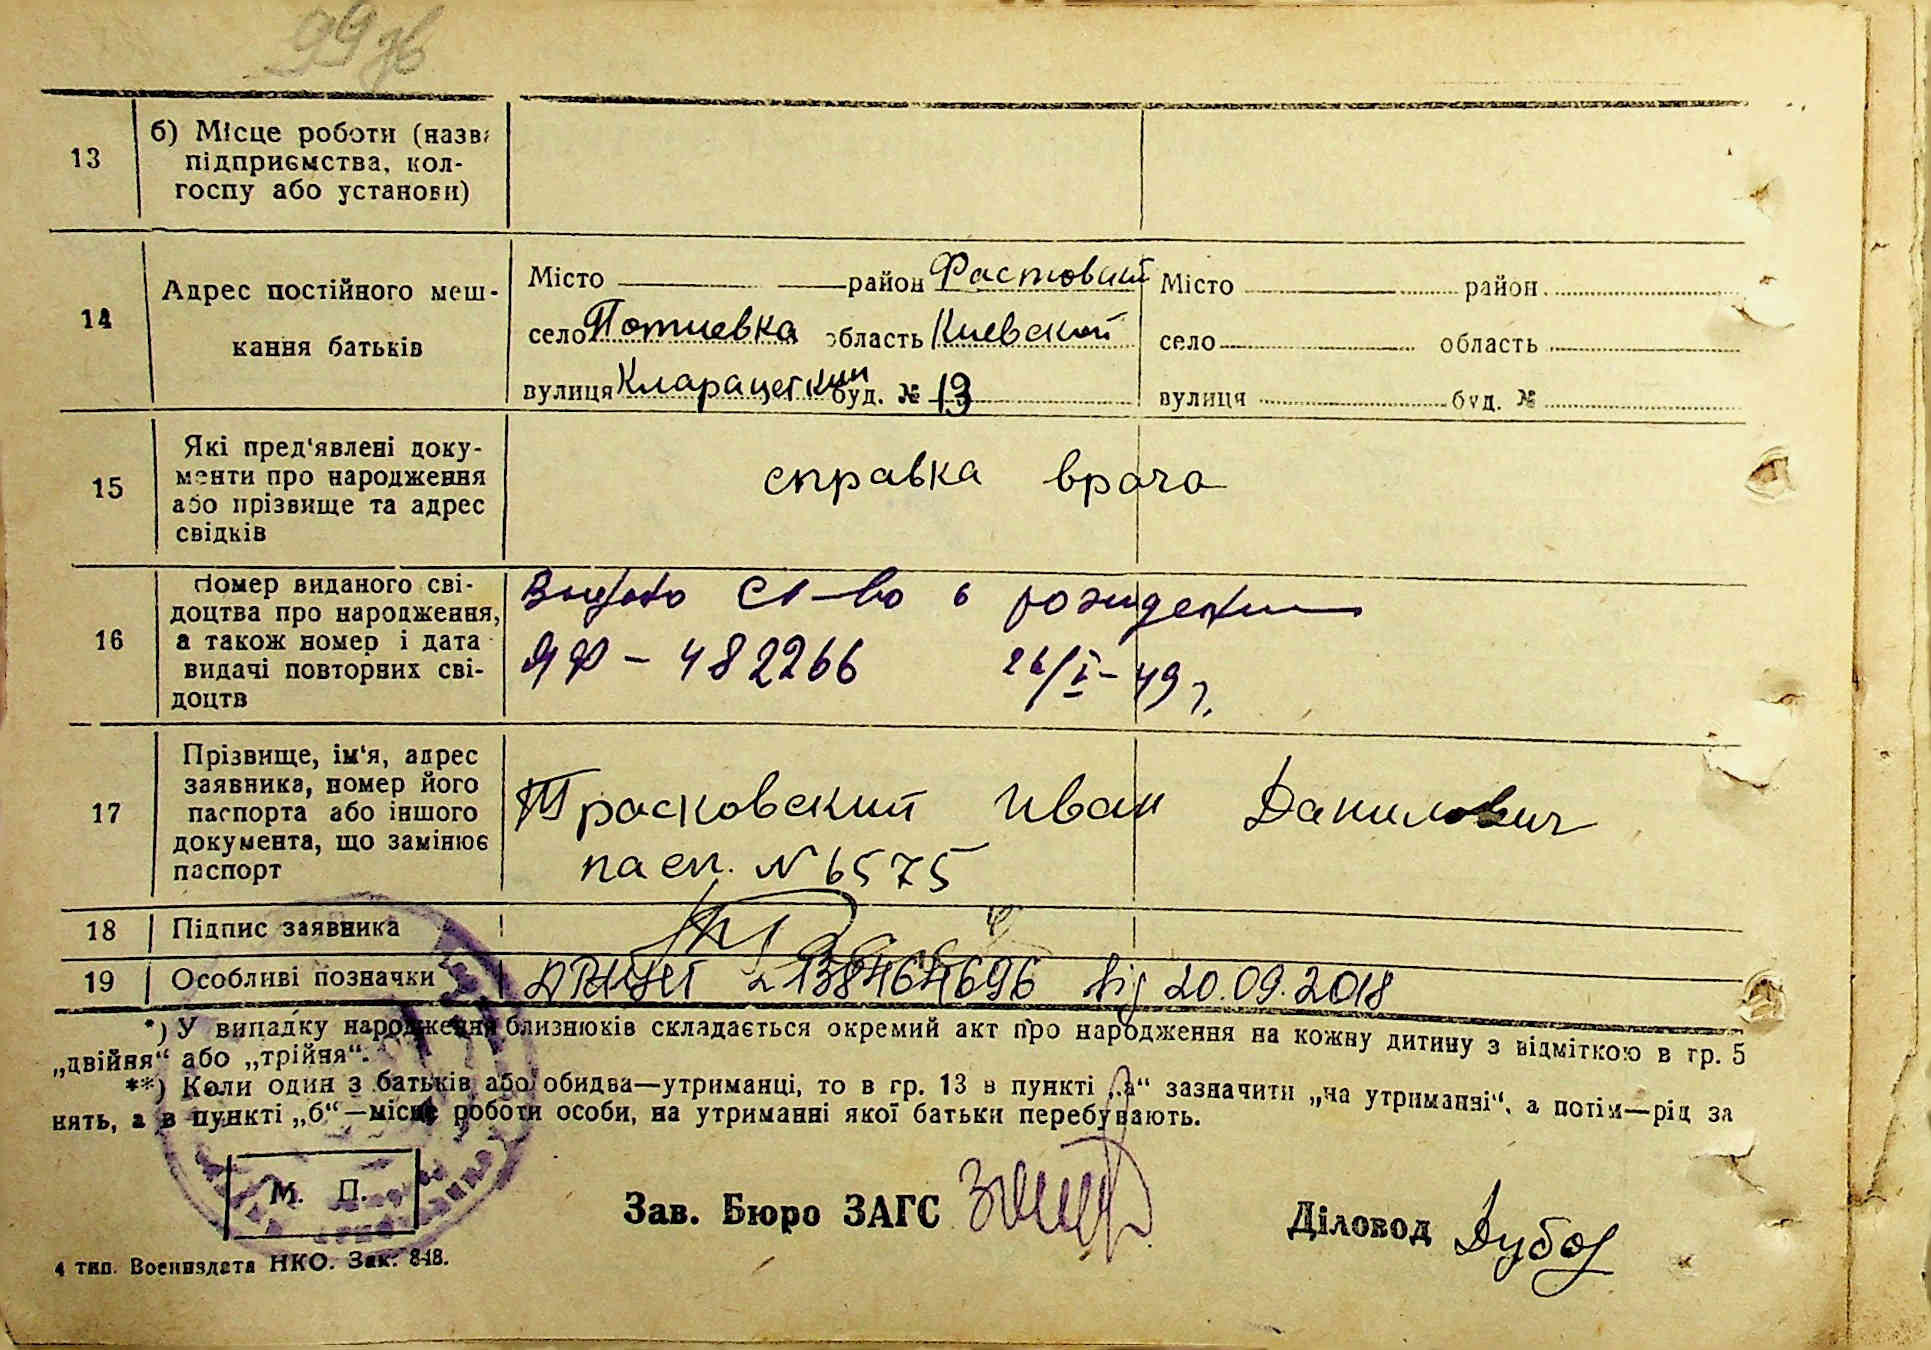 99 зв
13
б) Місце роботи (назва
підприємства, кол-
госпу або установи)
14
Адрес постійного меш-
кання батьків
Місто район Фастовский Місто район
село Потиевка область Киевской село область
вулиця Кларацеткин буд. № 13 вулиця буд. №
15
Які пред'явлені доку-
менти про народження
або прізвище та адрес
свідків
справка врача
16
Номер виданого сві-
доцтва про народження,
а також номер і дата
видачі повторних сві-
доцтв
Выдано св-во о рождении
ЯФ - 482266 26/I - 49 г.
17
Прізвище, ім'я, адрес
заявника, номер його
паспорта або іншого
документа, що замінює
паспорт
Трасковский Иван Данилович
пасп. N 6575
18 Підпис заявника
19 Особливі позначки
ДРАЦСГ 21384464696 від 20.09.2018
*) У випадку народження близнюків складається окремий акт про народження на кожну дитину з відміткою в гр. 5
„двійня“ або „трійня“.
**) Коли один з батьків або обидва—утриманці, то в гр. 13 в пункті „а“ зазначити „на утриманні“, а потім—рід за
нять, а в пункті „б“—місце роботи особи, на утриманні якої батьки перебувають.
М. П.
Зав. Бюро ЗАГС
Діловод
4 тип. Воениздата НКО. Зак. 848.